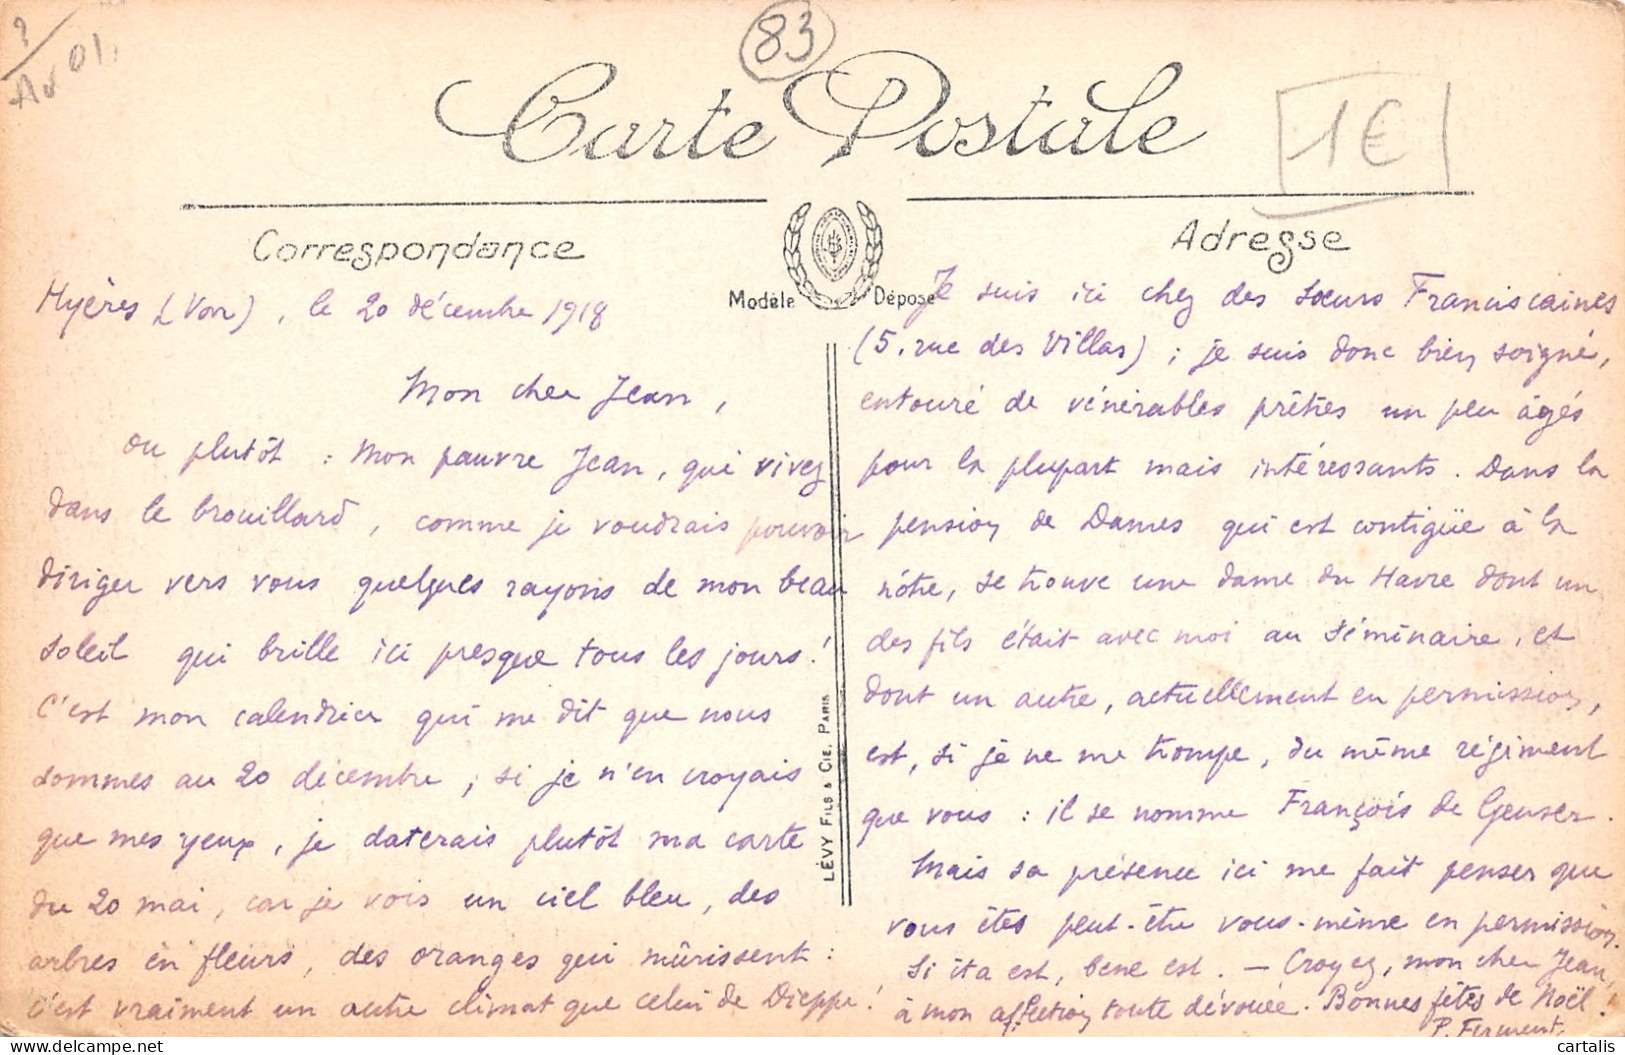 ?
Av 01.
83
Carte Postale
1€
Correspondance
Adresse
Modèle Déposé
LÉVY FILS & CIE, PARIS
Hyères (Var), le 20 décembre 1918
Mon cher Jean,
ou plutôt : Mon pauvre Jean, qui vivez
dans le brouillard, comme je voudrais pouvoir
diriger vers vous quelques rayons de mon beau
soleil qui brille ici presque tous les jours !
C'est mon calendrier qui me dit que nous
sommes au 20 décembre ; si je n'en croyais
que mes yeux, je daterais plutôt ma carte
du 20 mai, car je vois un ciel bleu, des
arbres en fleurs, des oranges qui mûrissent :
c'est vraiment un autre climat que celui de Dieppe !
Je suis ici chez des Sœurs Franciscaines
(5, rue des Villas) ; je suis donc bien soigné,
entouré de vénérables prêtres un peu âgés
pour la plupart mais intéressants. Dans la
pension de Dames qui est contigüe à la
nôtre, se trouve une dame du Havre dont un
des fils était avec moi au Séminaire, et
dont un autre, actuellement en permission,
est, si je ne me trompe, du même régiment
que vous : il se nomme François de Geuser.
Mais sa présence ici me fait penser que
vous êtes peut-être vous-même en permission.
Si ita est, bene est. — Croyez, mon cher Jean,
à mon affection toute dévouée. Bonnes fêtes de Noël !
P. Ferment.
cartalis